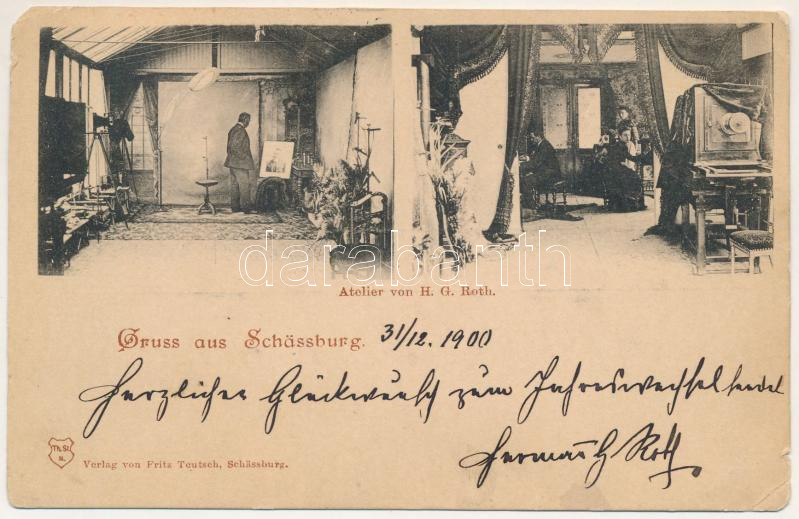 darabanth
Atelier von H. G. Roth.
Gruss aus Schässburg. 31/12. 1900
Herzlichen Glückwunsch zum Jahreswechsel sendet
Hermann G Roth
Th. St.
Verlag von Fritz Teutsch, Schässburg.